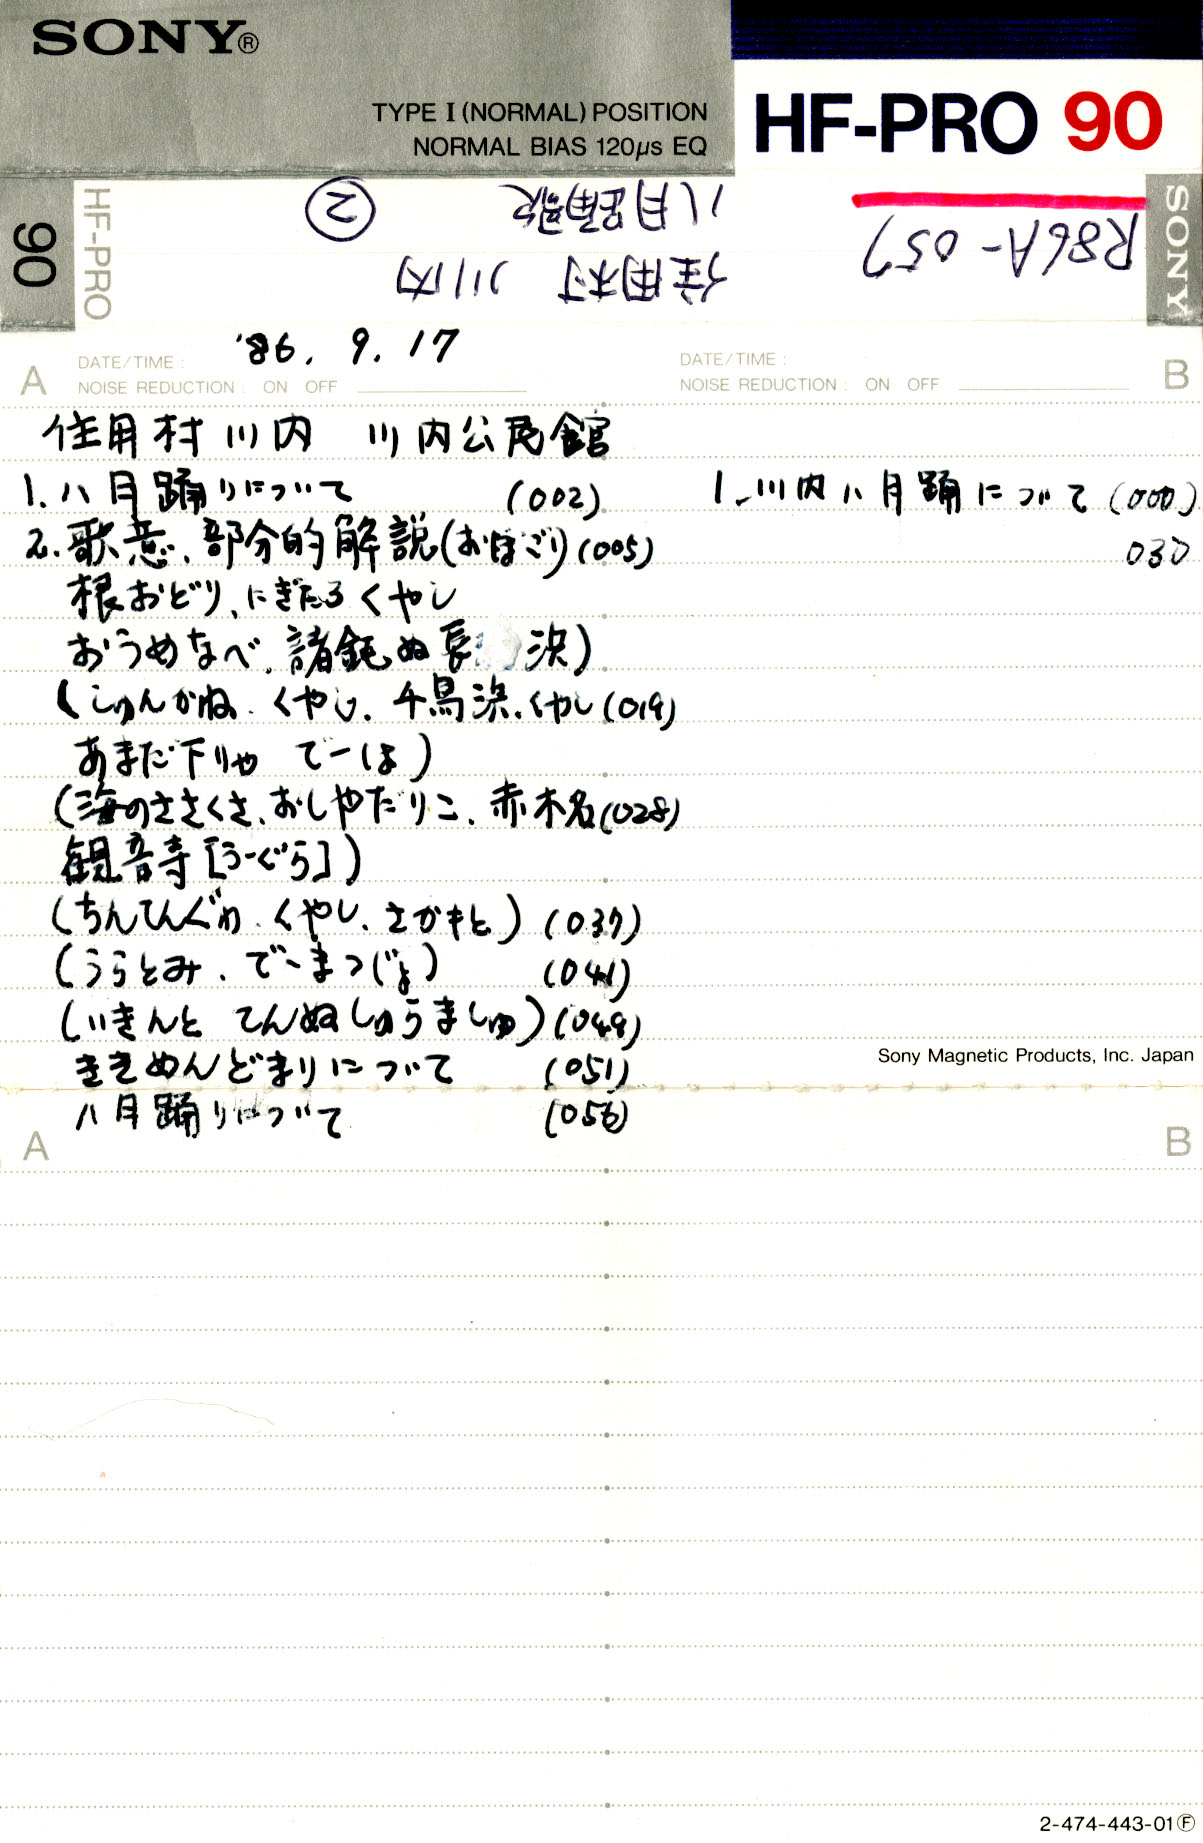 SONY®
TYPE I (NORMAL) POSITION
NORMAL BIAS 120μs EQ
HF-PRO 90
90
HF-PRO
R86A-057
住用村 川内
八月踊歌 ②
SONY
A DATE/TIME : '86. 9. 17
NOISE REDUCTION : ON OFF
DATE/TIME :
NOISE REDUCTION : ON OFF
B
住用村川内 川内公民館
1. 八月踊りについて (002)
2. 歌意、部分的解説(おぼこり) (005)
根おどり、にぎたろくやし
おうめなべ、諸鈍ぬ長 浜)
(しゅんかね、くやし、千鳥浜、くやし (019)
あまだ下りや でーほ)
(海のささくさ、おしやだりこ、赤木名 (028)
観音寺[うーぐら])
(ちんてんぐゎ、くやし、さかもと) (037)
(うらとみ、でーまつじょ) (041)
(いきんと てんぬしゅうましゅ) (049)
ききめんどまりについて (051)
八月踊りについて (056)
1. 川内八月踊について (000)
030
Sony Magnetic Products, Inc. Japan
A
B
2-474-443-01Ⓕ